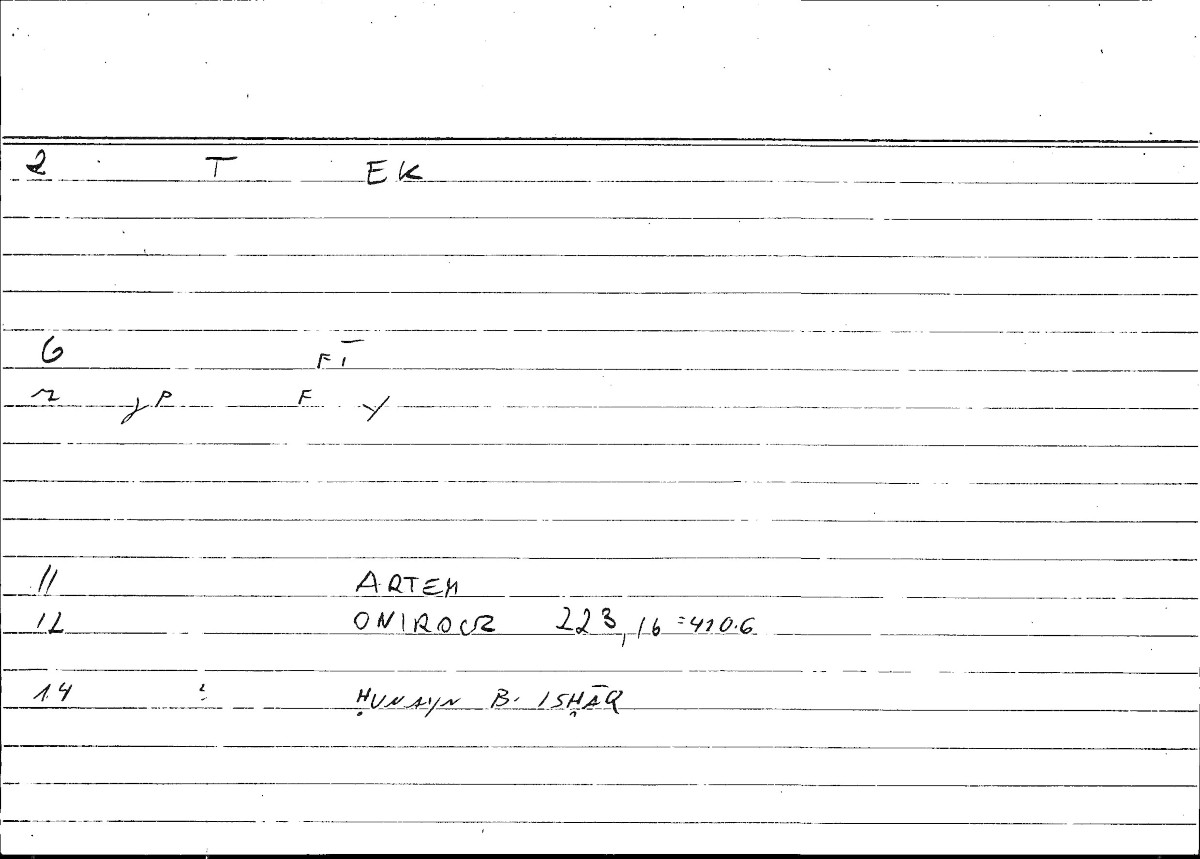 2 T EK
6 FĪ
P F y
11 ARTEM
12 ONIROCR 223,16 =410.6
14 ḤUNAYN B. ISḤĀQ